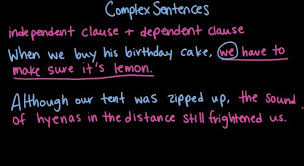 Complex Sentences
independent clause + dependent clause
When we buy his birthday cake, we have to
make sure it's lemon.
Although our tent was zipped up, the sound
of hyenas in the distance still frightened us.